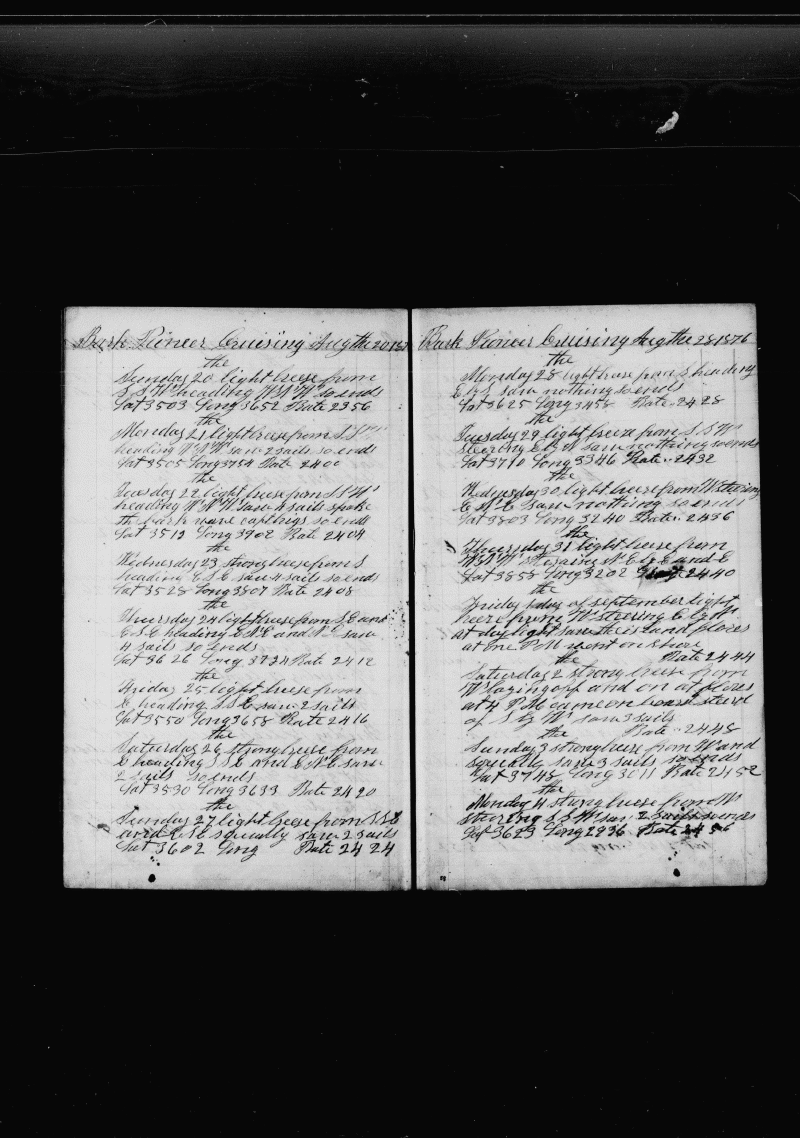 Bark Pioneer Cruising Aug the 20 187
the
Sunday 20 light breese from
S S W heading W N W so ends
Lat 3503 Long 3652 Rate 2356
the
Monday 21 light breese from S S W
heading W N W saw 2 sails so ends
Lat 3505 Long 3754 Rate 2400
the
Tuesday 22 light breese from S S W
heading W N W saw 4 sails spoke
the bark wave so ends
Lat 3512 Long 3902 Rate 2404
the
Wednesday 23 strong breese from S
heading E S E saw 4 sails so ends
Lat 3528 Long 3807 Rate 2408
the
Thursday 24 light breese from S E and
E S E heading E N E and N E saw
4 sails so ends
Lat 3626 Long 3734 Rate 2412
the
Friday 25 light breese from
E heading S S E saw 2 sails
Lat 3550 Long 3658 Rate 2416
the
Saturday 26 strong breese from
E heading S S E and E N E saw
2 sails so ends
Lat 3530 Long 3633 Rate 2420
the
Sunday 27 light breese from S S E
and E S E squally saw 2 sails
Lat 3602 Long Rate 2424
Bark Pioneer Cruising Aug the 28 1876
the
Monday 28 light breese from S heading
E by S saw nothing so ends
Lat 3625 Long 3458 Rate 2428
the
Tuesday 29 light breese from S S W
steering E by N saw nothing so ends
Lat 3710 Long 3346 Rate 2432
the
Wednesday 30 light breese from W steering
E N E saw nothing so ends
Lat 3803 Long 3240 Rate 2436
the
Thursday 31 light breese from
W N W steering N E by E and E
Lat 3858 Long 3202 2440
the
Friday 1 day of september light
breese from W steering E by N
at day light saw the island flores
at one P M went on shore
Rate 2444
the
Saturday 2 strong breese from
W laying off and on at flores
at 4 P M came on board steerd
of S by W saw 3 sails
Rate 2448
the
Sunday 3 strong breese from W and
squally saw 3 sails so ends
Lat 3748 Long 3011 Rate 2452
the
Monday 4 strong breese from W
steering S S W saw 2 sails so ends
Lat 3623 Long 2936 Rate 2456